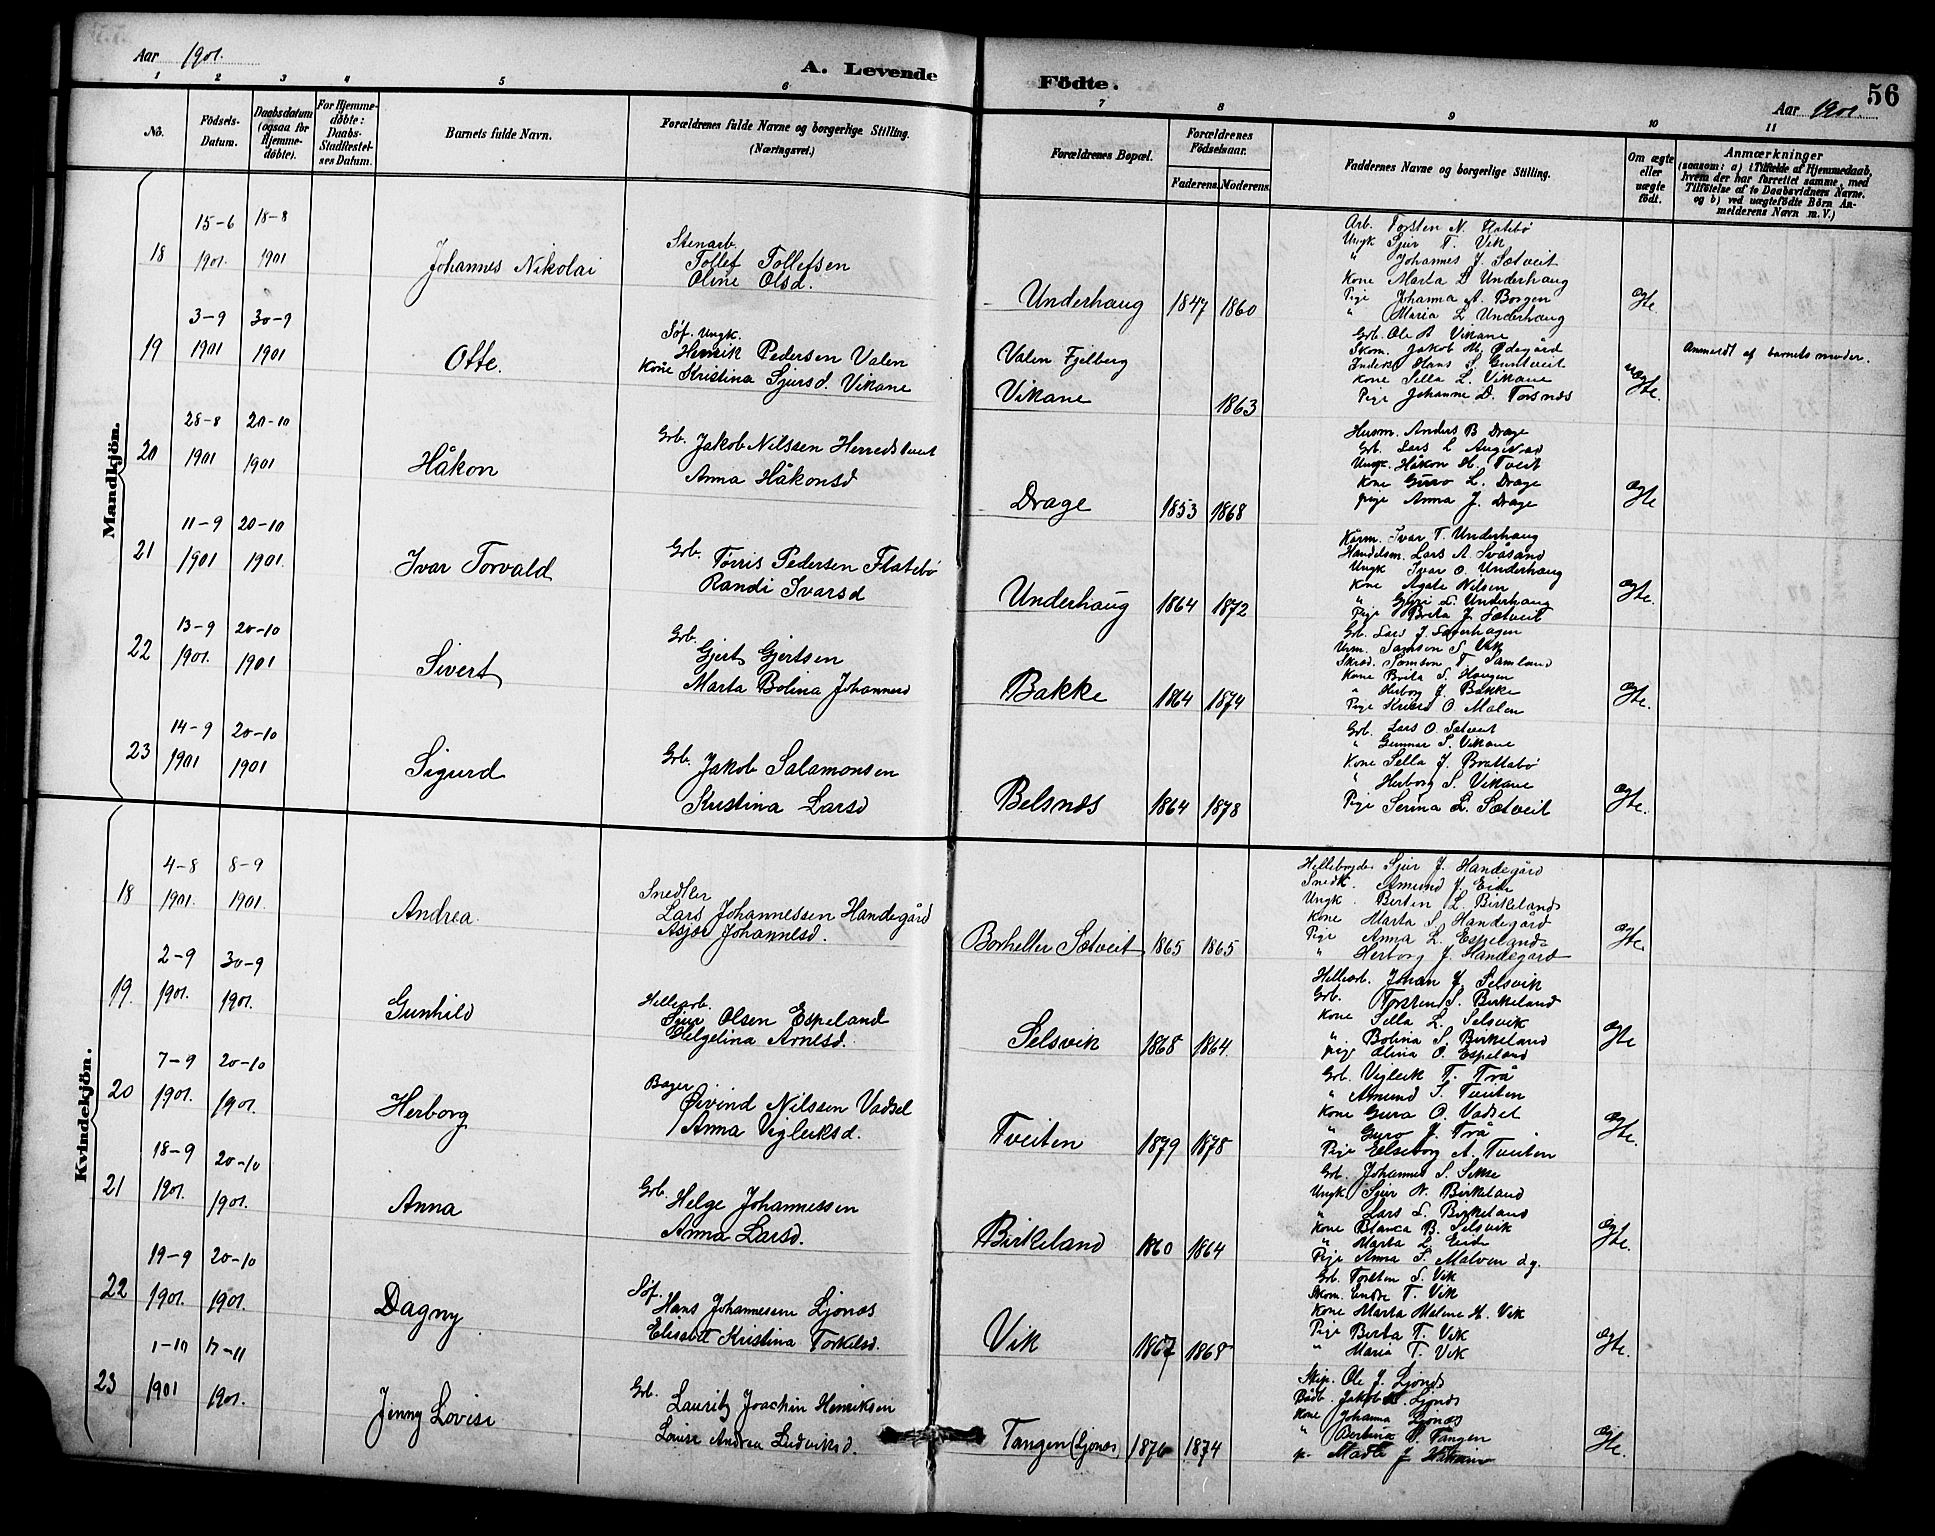 Aar 1901.
A. Levende Födte.
Aar 1901.
56
1 2 3 4 5 6 7 8 9 10 11
No.
Födsels-Datum.
Daabsdatum (ogsaa for Hjemme-döbte).
For Hjemme-döbte: Daabs-Stadfæstel-ses Datum.
Barnets fulde Navn.
Forældrenes fulde Navne og borgerlige Stilling.
(Næringsvei.)
Forældrenes Bopæl.
Forældrenes Födselsaar.
Faderens. Moderens.
Faddernes Navne og borgerlige Stilling.
Om ægte eller uægte födt.
Anmærkninger
(saasom: a) i Tilfælde af Hjemmedaab,
hvem der har forrettet samme, med
Tilföielse af to Daabsvidners Navne.
og b) ved uægtefödte Börn An-
melderens Navn m. V.)
Mandkjön.
18
15-6 1901.
18-8 1901
Johannes Nikolai
Stenarb.
Tollef Tollefsen
Oline Olsd.
Underhaug 1847 1860
Arb. Torsten N. Flatebø
Ungk Sjur T. Vik
" Johannes J. Sætveit
Kone Marta D Underhaug
Pige Johanna A. Borgen
" Maria L Underhaug
Ægte.
19
3-9 1901
30-9 1901
Otte.
Søf. Ungk.
Henrik Pedersen Valen
Kone Kristina Sjursd. Vikane
Valen Fjelberg
Vikane 1863
Grb. Ole A Vikane
Skom. Jakob M. Ødegård
Hans S Guntveit
Kone Sella L. Vikane
Pige Johanne D. Torsnæs
uægte.
Anmeldt af barnets moder.
20
28-8 1901
20-10 1901
Håkon
Grb. Jakob Nilssen Herredstveit
Anna Håkonsd
Drage 1853 1868
Husm. Anders B Drage
Grb. Lars L
Ungk. Håkon H. Tveit
Kone Guro L. Drage
pige Anna J. Drage
Ægte
21
11-9 1901
20-10 1901.
Ivar Torvald
Grb. Tørris Pedersen Flatebø
Randi Ivarsd
Underhaug 1864 1872
Kårm. Ivar T. Underhaug
Handelsm. Lars A. Svåsand
Ungk Ivar O. Underhaug
Kone Agate Nilsen
" Guri L. Underhaug
Pige Brita J Sætveit
Ægte.
22
13-9 1901.
20-10 1901
Sivert
Grb.
Gjert Gjertsen
Marta Bolina Johannesd
Bakke 1864 1874
Grb. Lars J.
Samson S Vik
Skræd. Samson T. Samland
Kone Brita S. Haugen
" Herborg J. Bakke
Pige O Malen
Ægte.
23
14-9 1901
20-10 1901
Sigurd
Grb. Jakob Salamonsen
Kristina Larsd
Belsnæs 1864 1878
Grb. Lars O. Sætveit
" Gunnar S. Vikane
Kone Sella J. Brattabø
" Herborg S. Vikane
Pige Serina L. Sætveit
Ægte.
Kvindekjön.
18
4-8 1901.
8-9 1901.
Andrea.
Snedker
Lars Johannessen Handegård
Johannesd.
Borheller Sætveit 1865 1865
Sjur J. Handegård
Snedk. Amund J. Eide
Ungk. L. Birkeland
Kone Marta S. Handegård
Pige Anna L. Espeland
" Herborg J. Handegård
Ægte
19.
2-9 1901.
30-9 1901.
Gunhild
Hellearb.
Sjur Olsen Espeland
Helgelina Arnesd.
Selsvik 1868 1864
Hellearb. Johan J. Selsvik
Grb. Torsten S. Birkeland
Kone Sella L. Selsvik
" Bolina S. Birkeland
pige Olina O. Espeland
Ægte
20
7-9 1901.
20-10 1901.
Herborg
Bager.
Øivind Nilssen Vadsel
Anna Vigleiksd.
Tveiten 1879 1878
Grb. Vigleik T. Trå
" Amund S. Tveiten
Kone Gura O. Vadset
" Guro J. Trå
Pige Elseborg A. Tveiten
Ægte.
21
18-9 1901.
20-10 1901.
Anna
Grb. Helge Johannessen
Anna Larsd.
Birkeland 1860 1864
Grb. Johannes S.
Ungk Sjur N. Birkeland
" Lars S. Birkeland
Kone Blanca B. Selsvik
" Marta L. Eide
Pige Anna S. Malven d.y.
Ægte.
22
19-9 1901.
20-10 1901.
Dagny
Søf.
Hans Johannessen Ljonæs
Elisabet Kristina Torkelsd.
Vik 1867 1868
Grb. Torsten S. Vik
Skom. Endre T. Vik
Kone Marta Malene H. Vik
Pige Berta T. Vik
" Maria T. Vik
Ægte.
23
1-10 1901
17-11 1901.
Jenny Lovise
Grb. Lauritz Joachin Henriksen
Lovise Andrea Ludviksd.
Tangen (Ljonæs) 1876 1874
Skip. Ole J. Ljonæs
Bådb. Jakob Ljonæs
Kone Johanna Ljonæs
" Berbina Tangen
p. J
Ægte.